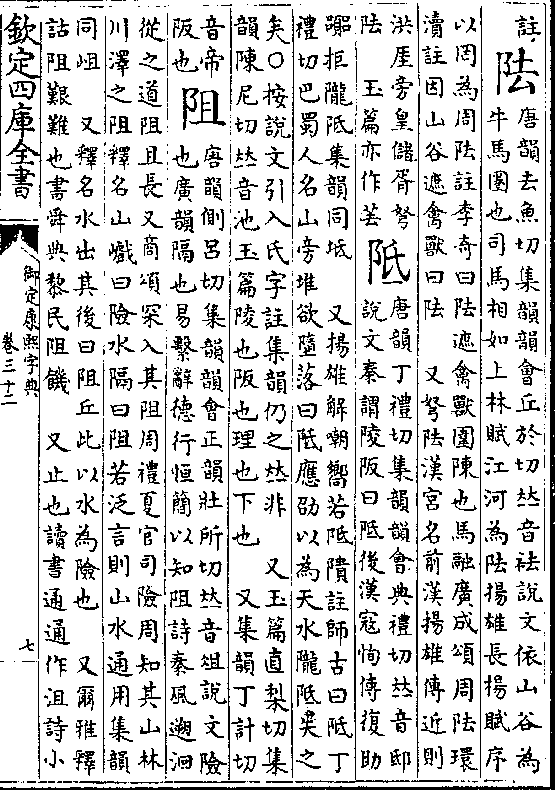 註
阹
唐韻去魚切集韻韻會丘於切𠀤音祛說文依山谷為
牛馬圈也司馬相如上林賦江河為阹揚雄長楊賦序
以罔為周阹註李奇曰阹遮禽獸圍陳也馬融廣成頌周阹環
瀆註因山谷遮禽獸曰阹 又弩阹漢宮名前漢揚雄傳近則
洪厓旁皇儲胥弩
阹 玉篇亦作厺
阺
唐韻丁禮切集韻韻會典禮切𠀤音邸
說文秦謂陵阪曰阺後漢寇恂傳復助
隗拒隴阺集韻同坻 又揚雄解嘲嚮若阺隤註師古曰阺丁
禮切巴蜀人名山旁堆欲墮落曰阺應劭以為天水隴阺失之
矣○按說文引入氏字註集韻仍之𠀤非 又玉篇直梨切集
韻陳尼切𠀤音池玉篇陵也阪也理也下也 又集韻丁計切
音帝
阪也
阻
唐韻側呂切集韻韻會正韻壯所切𠀤音俎說文險
也廣韻隔也易繫辭德行恒簡以知阻詩秦風遡洄
從之道阻且長又商頌罙入其阻周禮夏官司險周知其山林
川澤之阻釋名山巇曰險水隔曰阻若泛言則山水通用集韻
同岨 又釋名水出其後曰阻丘此以水為險也 又爾雅釋
詁阻艱難也書舜典黎民阻饑 又止也讀書通通作沮詩小
欽定四庫全書
御定康熙字典
卷三十二
七